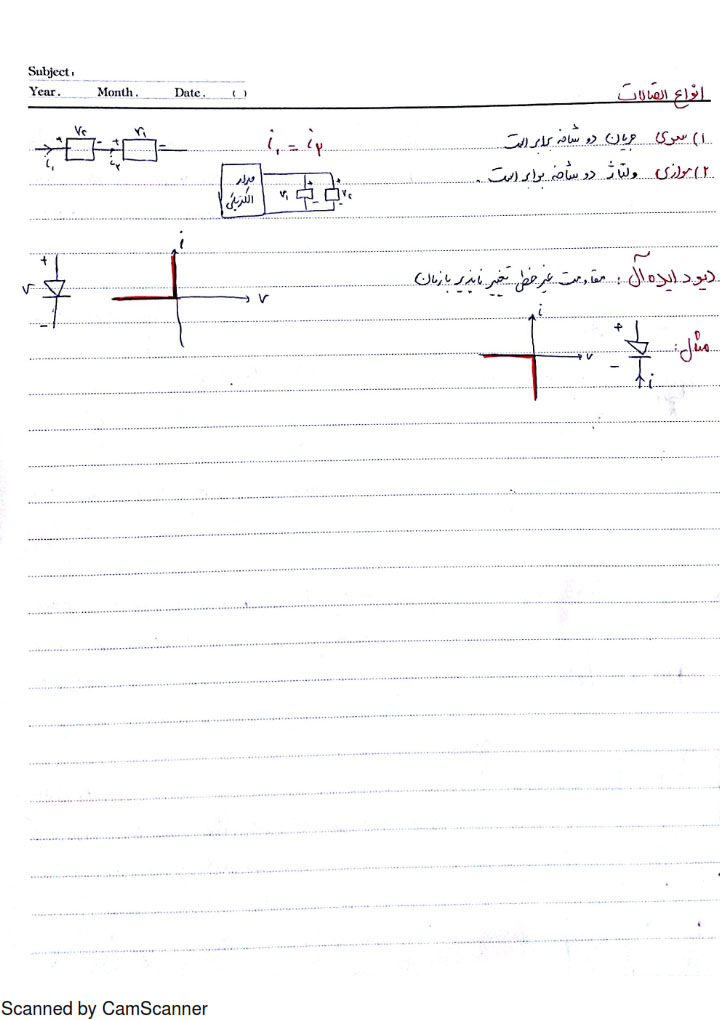 Subject:
Year. Month. Date. ( )
انواع اتصالات
۱) سری جریان دو شاخه برابر است
i₁ = i₂
v₂ v₁
+ - + -
i₁ i₂
۲) موازی ولتاژ دو شاخه برابر است.
مدار
الکتریکی
v₁ + - + - v₂
دیود ایده‌آل: مقاومت غیرخطی تغییرناپذیر با زمان
i
v
+
v
-
مثل:
i
v
+
-
i
Scanned by CamScanner